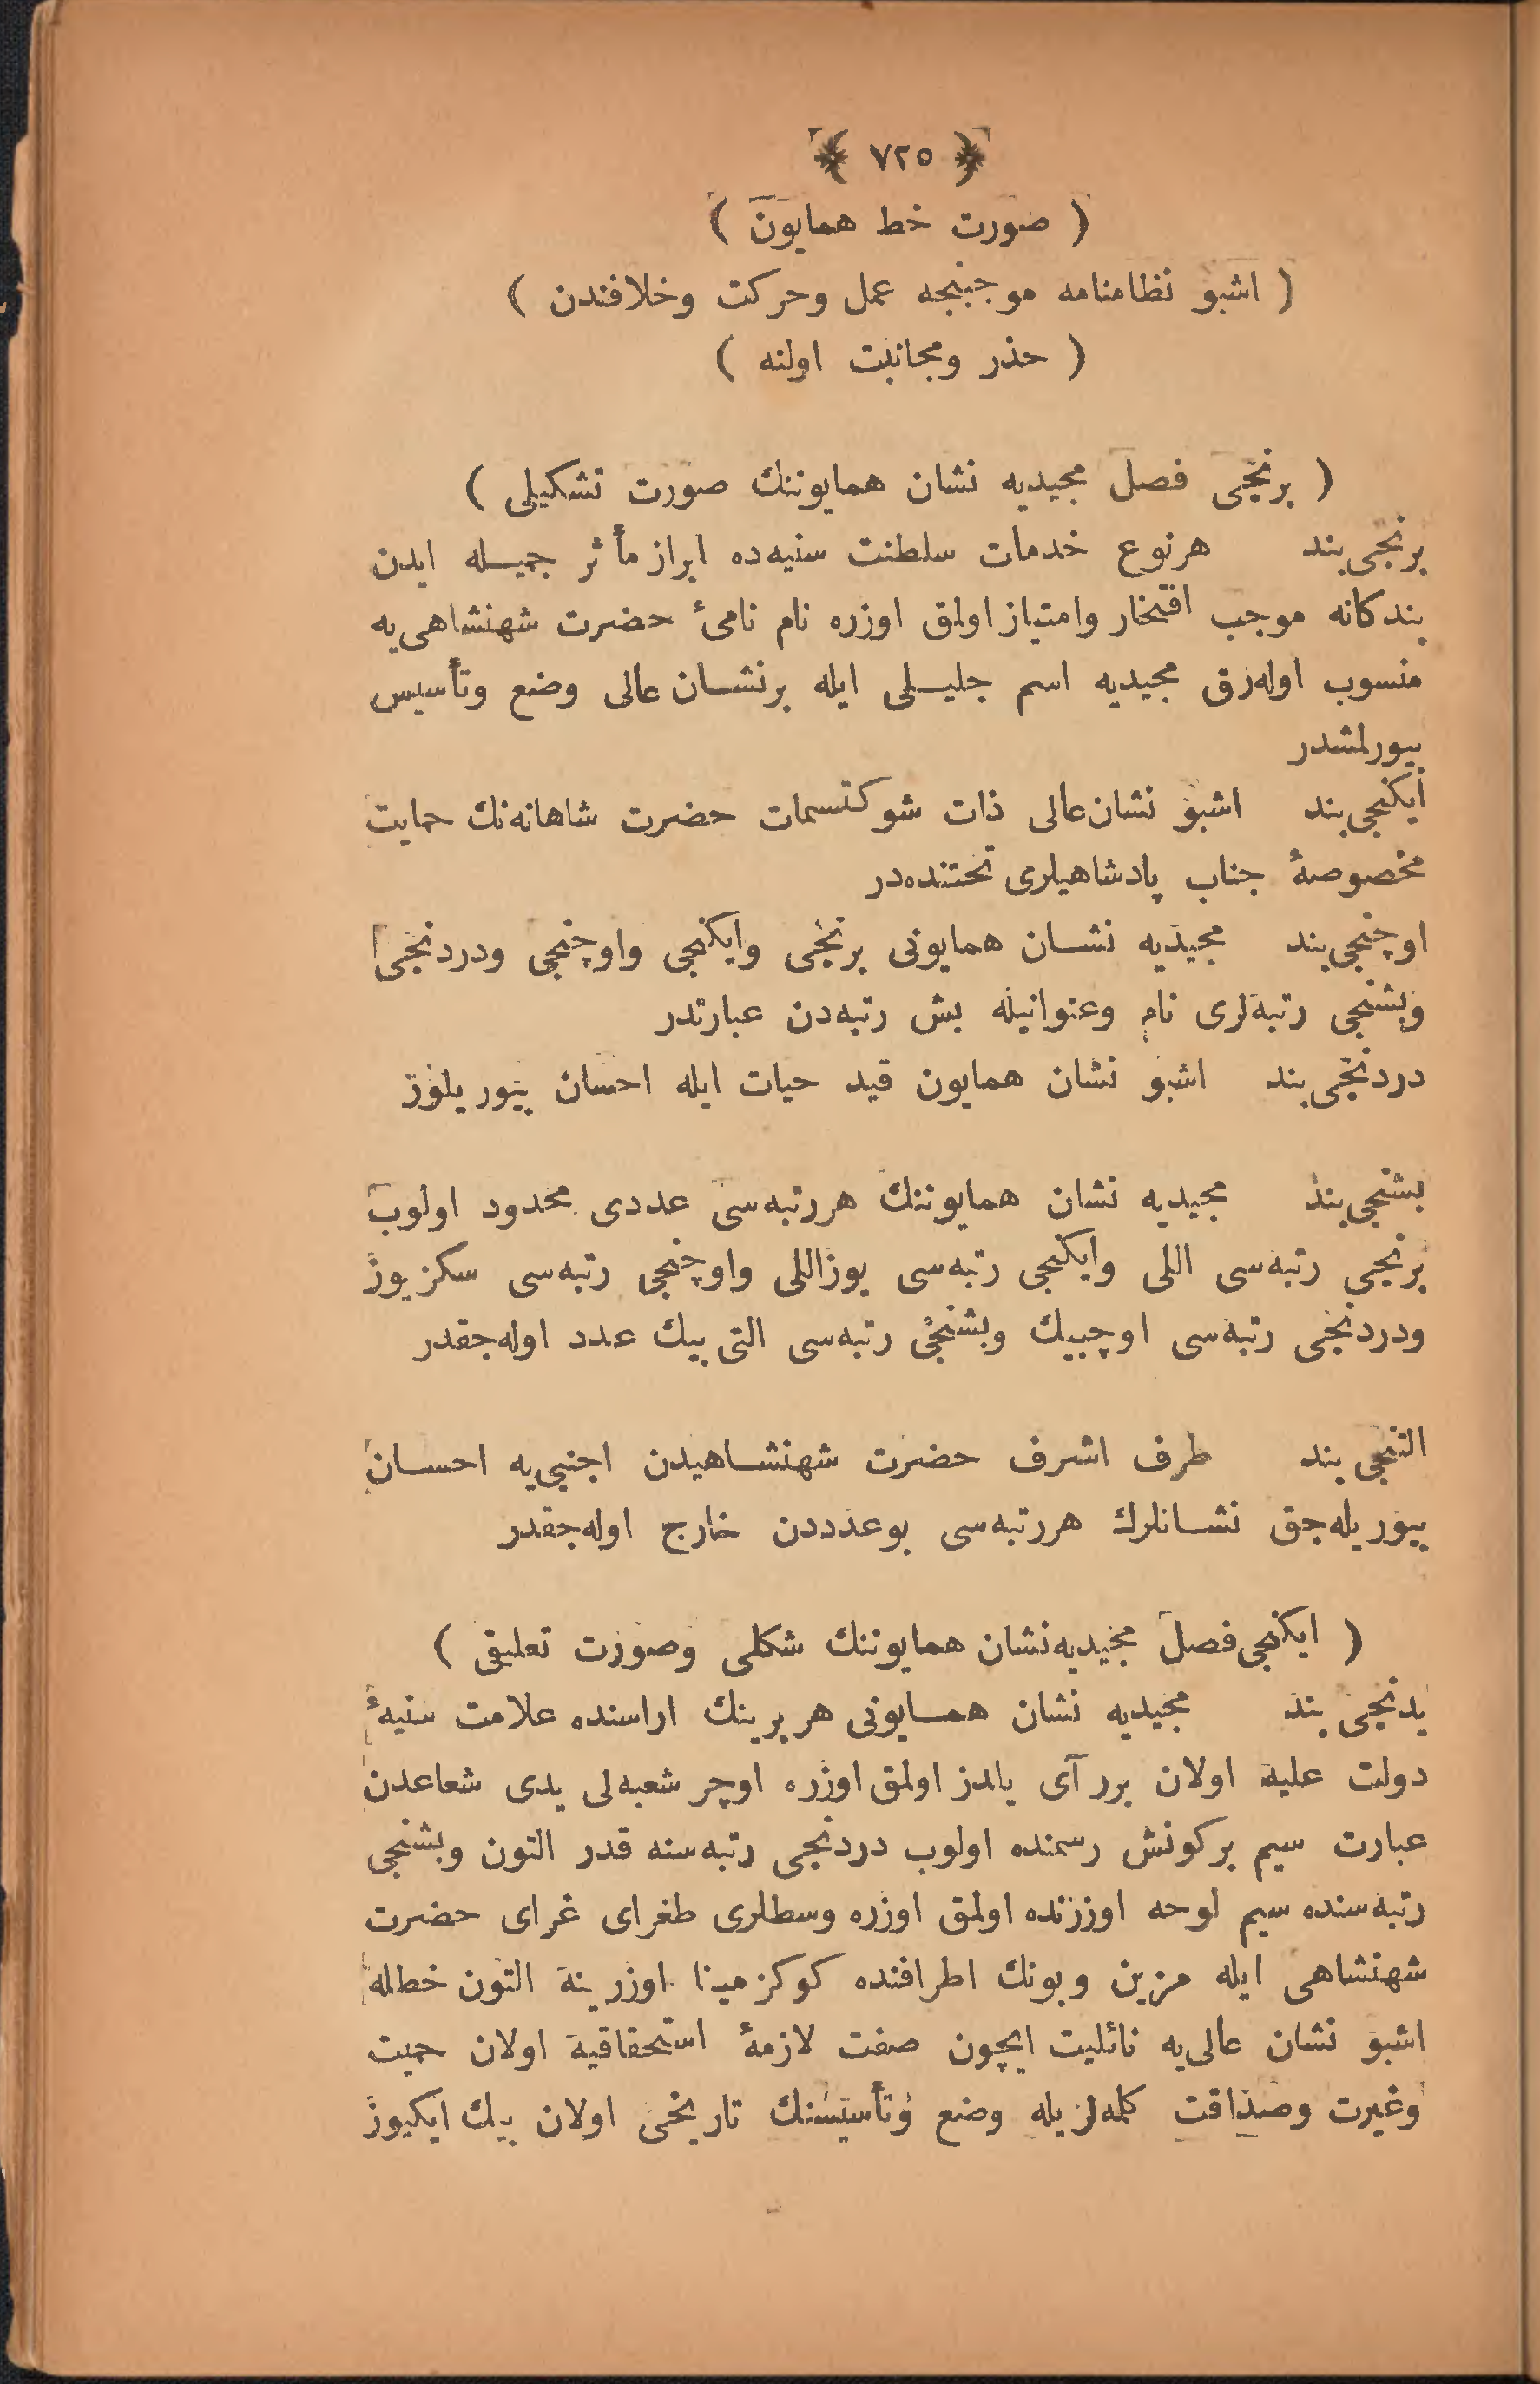 ﴿ ٧٢٥ ﴾
( صورت خط همايون )
( اشبو نظامنامه موجبنجه عمل وحركت وخلافندن )
( حذر ومجانبت اولنه )
( برنجى فصل مجيديه نشان همايوننك صورت تشكيلى )
برنجى بند هرنوع خدمات سلطنت سنيه‌ده ابراز مأثر جميله ايدن
بندكانه موجب افتخار وامتياز اولمق اوزره نام نامئ حضرت شهنشاهى‌يه
منسوب اوله‌رق مجيديه اسم جليلى ايله برنشان عالى وضع وتأسيس
بيورلمشدر
ايكنجى بند اشبو نشان عالى ذات شوكتسمات حضرت شاهانه‌نك حمايت
مخصوصهٔ جناب پادشاهيلرى تحتنده‌در
اوچنجى بند مجيديه نشان همايونى برنجى وايكنجى واوچنجى ودردنجى
وبشنجى رتبه‌لرى نام وعنوانيله بش رتبه‌دن عبارتدر
دردنجى بند اشبو نشان همايون قيد حيات ايله احسان بيوريلور
بشنجى بند مجيديه نشان همايوننك هررتبه‌سى عددى محدود اولوب
برنجى رتبه‌سى اللى وايكنجى رتبه‌سى يوزاللى واوچنجى رتبه‌سى سكزيوز
ودردنجى رتبه‌سى اوچبيك وبشنجى رتبه‌سى التى بيك عدد اوله‌جقدر
التنجى بند طرف اشرف حضرت شهنشاهيدن اجنبى‌يه احسان
بيوريله‌جق نشانلرك هررتبه‌سى بوعدددن خارج اوله‌جقدر
( ايكنجى فصل مجيديه نشان همايوننك شكلى وصورت تعليقى )
يدنجى بند مجيديه نشان همايونى هربرينك اراسنده علامت سنيهٔ
دولت عليه اولان برر آى يلدز اولمق اوزره اوچر شعبه‌لى يدى شعاعدن
عبارت سيم بركونش رسمنده اولوب دردنجى رتبه‌سنه قدر التون وبشنجى
رتبه‌سنده سيم لوحه اوزرنده اولمق اوزره وسطلرى طغراى غراى حضرت
شهنشاهى ايله مزين وبونك اطرافنده كوكز مينا اوزرينه التون خطله
اشبو نشان عالى‌يه نائليت ايچون صفت لازمهٔ استحقاقيه اولان حميت
وغيرت وصداقت كلمه‌لريله وضع وتأسيسنك تاريخى اولان بيك ايكيوز